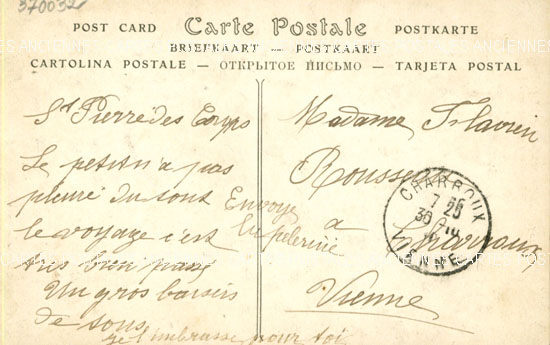 370032
POST CARD Carte Postale POSTKARTE
BRIEFKAART — POSTKAART
CARTOLINA POSTALE — ОТКРЫТОЕ ПИСЬМО — TARJETA POSTAL
St Pierre des Corps
Le petit n'a pas
pleuré du tout
le voyage s'est
très bien passé
Un gros baisers
de tous
je l'embrasse pour toi
Envoye
la pelerine
Madame Flavien
Rousseau
a
Charroux
Vienne
CHARROUX
7 25
30
VIENNE